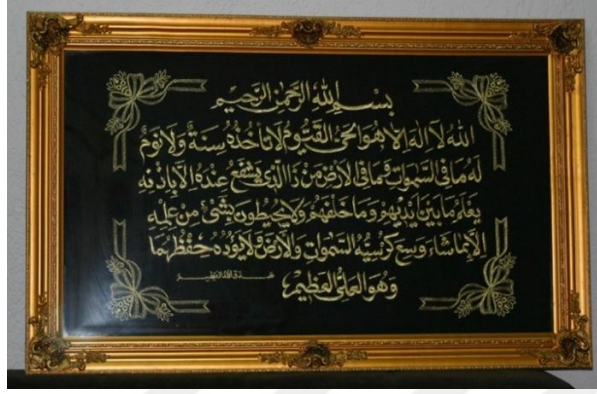 بسم الله الرحمن الرحيم
الله لا اله الا هو الحي القيوم لا تأخذه سنة ولا نوم
له ما في السموات وما في الارض من ذا الذي يشفع عنده الا باذنه
يعلم ما بين ايديهم وما خلفهم ولا يحيطون بشئ من علمه
الا بما شاء وسع كرسيه السموات والارض ولا يؤده حفظهما
وهو العلي العظيم
صدق الله العظيم